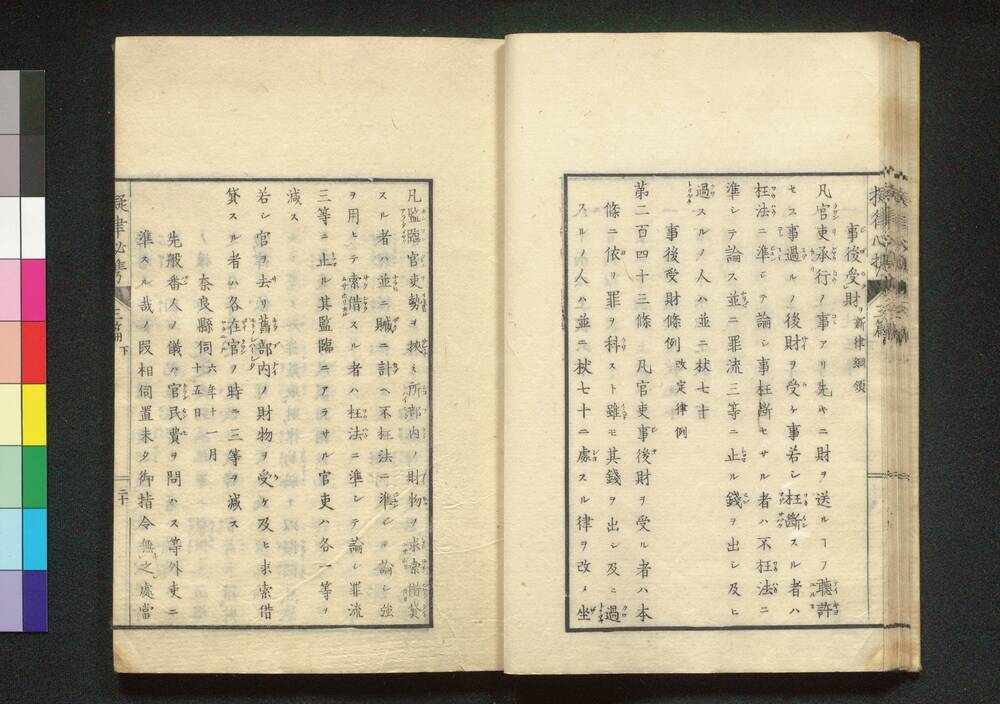 事後受財 新律綱領
凡官吏承行ノ事アリ先キニ財ヲ送ルヿヲ聽許
セス事過ルノ後財ヲ受ケ事若シ枉斷スル者ハ
枉法ニ準シテ論シ事枉斷セサル者ハ不枉法ニ
準シテ論ス並ニ罪流三等ニ止ル錢ヲ出シ及ヒ
過スルノ人ハ並ニ杖七十
事後受財條例 改定律例
第二百四十三條 凡官吏事後財ヲ受ル者ハ本
條ニ依リ罪ヲ科スト雖モ其錢ヲ出シ及ヒ過
スルノ人ハ並ニ杖七十ニ處スル律ヲ改メ坐
凡監臨官吏勢ヲ挾ミ所部内ノ財物ヲ求索借貸
スル者ハ並ニ贓ニ計ヘ不枉法ニ準シテ論シ強
ヲ用ヒテ索借スル者ハ枉法ニ準シテ論シ罪流
三等ニ止ル其監臨ニアラサル官吏ハ各一等ヲ
減ス
若シ官ヲ去リ舊部内ノ財物ヲ受ケ及ヒ求索借
貸スル者ハ各在官ノ時ニ三等ヲ減ス
奈良縣伺 六年十一月十五日
先般番人ノ儀ハ官民費ヲ問ハス等外吏ニ
準スル哉ノ段相伺置未タ御指令無之處當
二十